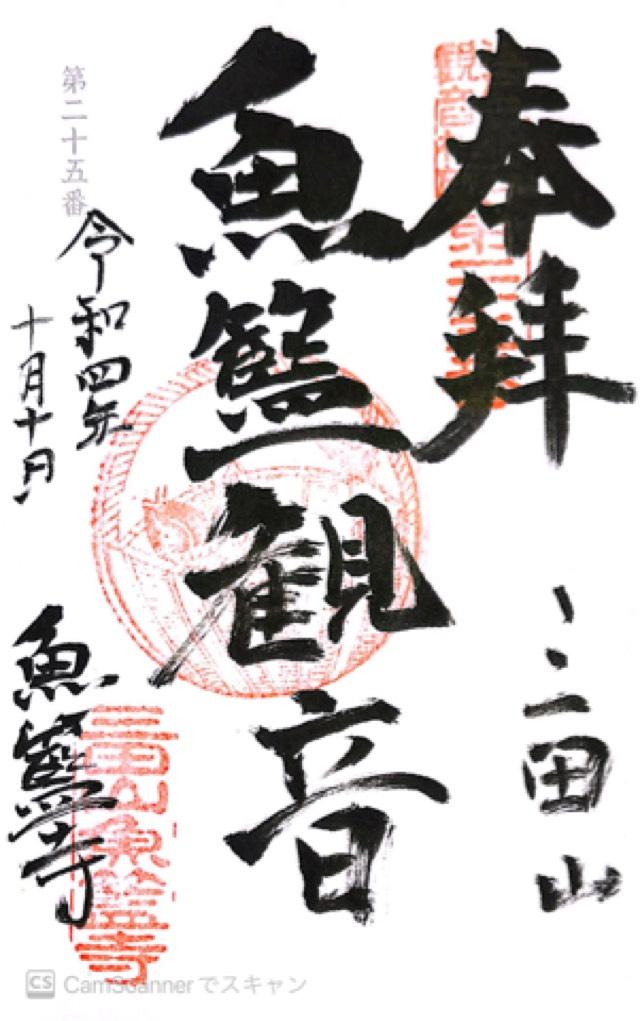 奉拝
三田山
魚籃観音
第二十五番
令和四年
十月十日
魚籃寺
三田山魚籃寺
CS CamScannerでスキャン